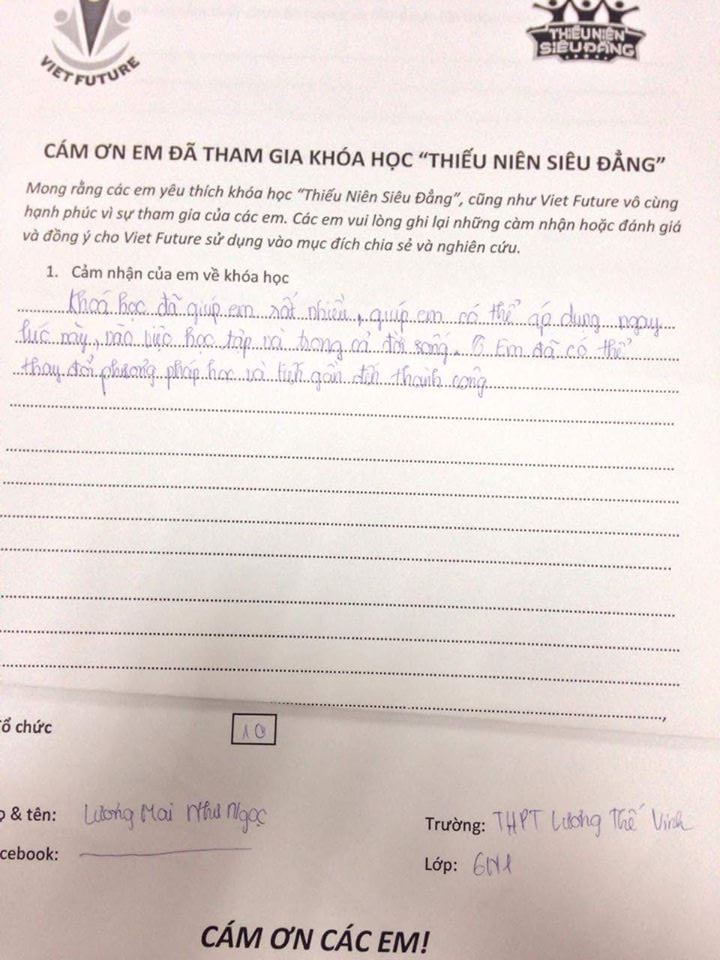 VIET FUTURE
THIẾU NIÊN
SIÊU ĐẲNG
CÁM ƠN EM ĐÃ THAM GIA KHÓA HỌC “THIẾU NIÊN SIÊU ĐẲNG”
Mong rằng các em yêu thích khóa học “Thiếu Niên Siêu Đẳng”, cũng như Viet Future vô cùng
hạnh phúc vì sự tham gia của các em. Các em vui lòng ghi lại những càm nhận hoặc đánh giá
và đồng ý cho Viet Future sử dụng vào mục đích chia sẻ và nghiên cứu.
1. Cảm nhận của em về khóa học
Khoá học đã giúp em rất nhiều, giúp em có thể áp dụng ngay
lúc này, vào việc học tập và trong cả đời sống. Em đã có thể
thay đổi phương pháp học và tiến gần đến thành công
ổ chức 10
& tên: Lương Mai Như Ngọc
Trường: THPT Lương Thế Vinh
cebook:
Lớp: 6N1
CÁM ƠN CÁC EM!